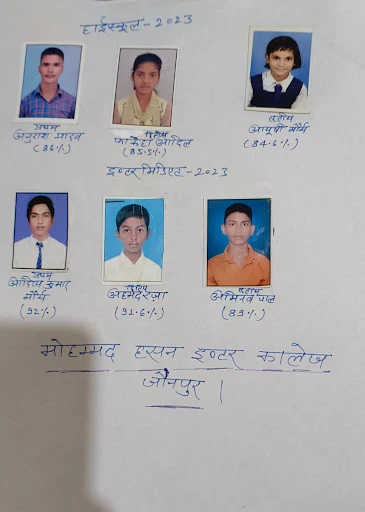 हाईस्कूल - 2023
प्रथम द्वितीय तृतीय
अनुराग यादव फाकेहा आदिल आयुषी मौर्य
(86%) (85.5%) (84.6%)
इण्टरमिडिएट - 2023
प्रथम द्वितीय तृतीय
आदित्य कुमार अहमद रजा अभिनव पाल
मौर्य (91.6%) (89%)
(92%)
मोहम्मद हसन इण्टर कालेज
जौनपुर |